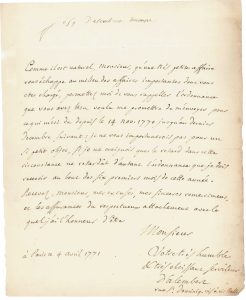 Comme il est naturel, Monsieur, qu'une très petite affaire
vous échappe au milieu des affaires importantes dont vous
êtes chargé, permettez moi de vous rappeller l'ordonnance
que vous avez bien voulu me promettre de m'envoyer pour
ce qui m'est dû depuis le 14 nov. 1770 jusqu'au dernier
décembre suivant; je ne vous importunerois pas pour un
si petit objet, si je ne craignois que le retard dans cette
circonstance ne retardât d'autant l'ordonnance que je dois
recevoir au bout des six premiers mois de cette année.
Recevez, monsieur, mes excuses, mes sinceres remerciemens,
et les assurances du respectueux attachement avec le
quel j'ai l'honneur d'être
Monsieur
Votre très humble
& très obéissant serviteur
D'alembert
à Paris ce 9 avril 1771
rue St Dominique